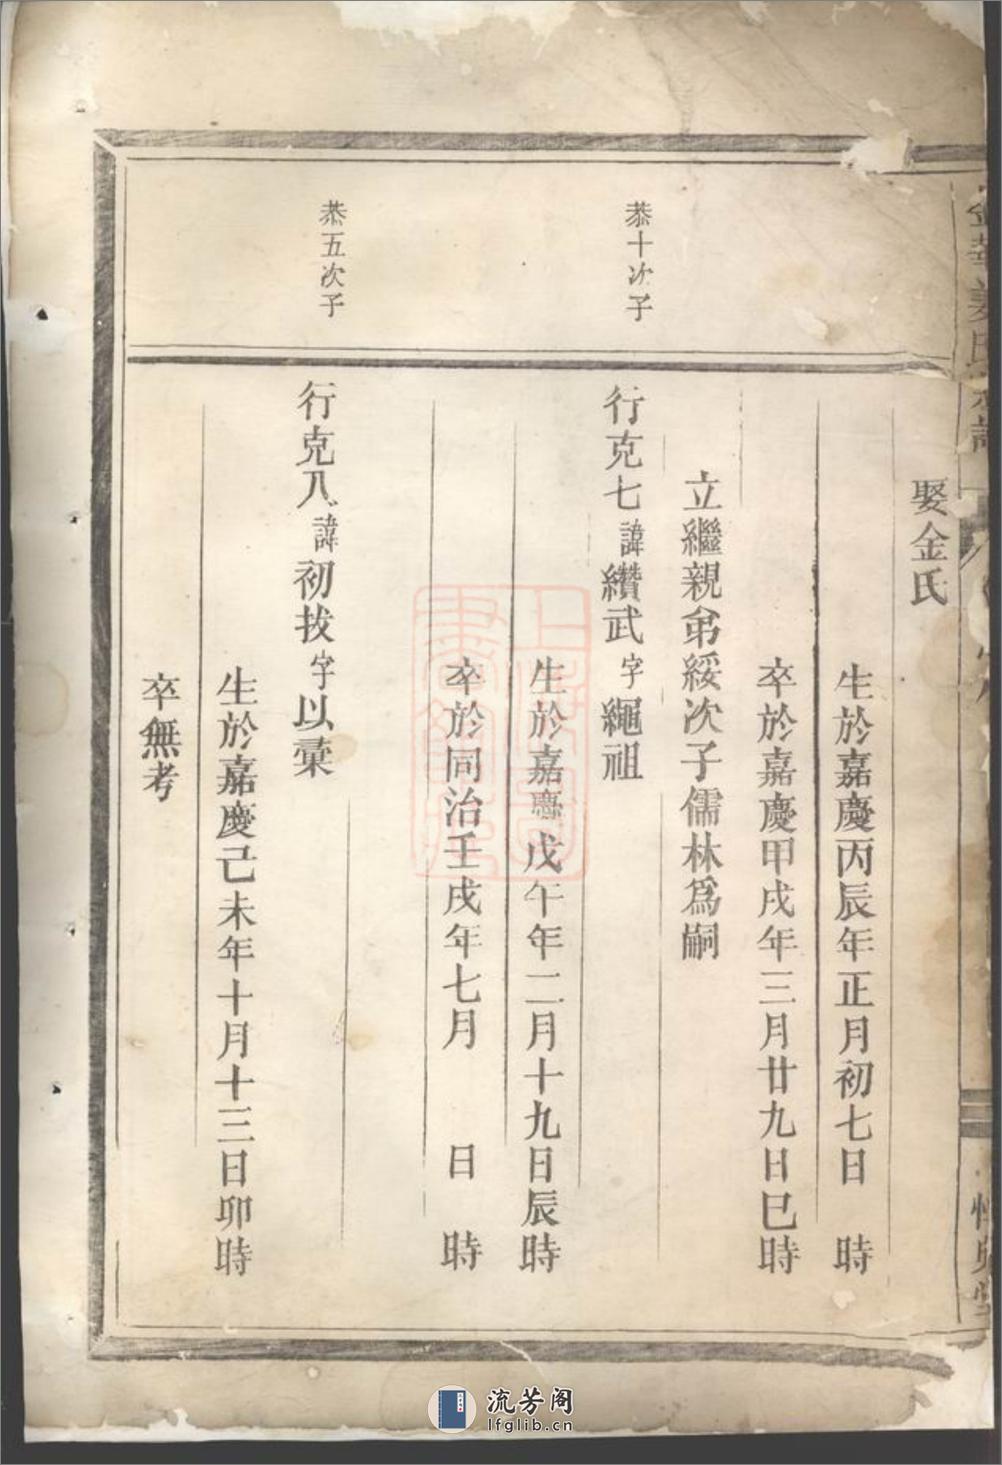 娶金氏
生於嘉慶丙辰年正月初七日　時
卒於嘉慶甲戌年三月廿九日巳時
立繼親弟綏次子儒林為嗣
恭十次子
行克七諱纘武字繩祖
生於嘉慶戊午年二月十九日辰時
卒於同治壬戌年七月　日　時
恭五次子
行克八諱初拔字以彙
生於嘉慶己未年十月十三日卯時
卒無考
流芳阁
lfglib.cn